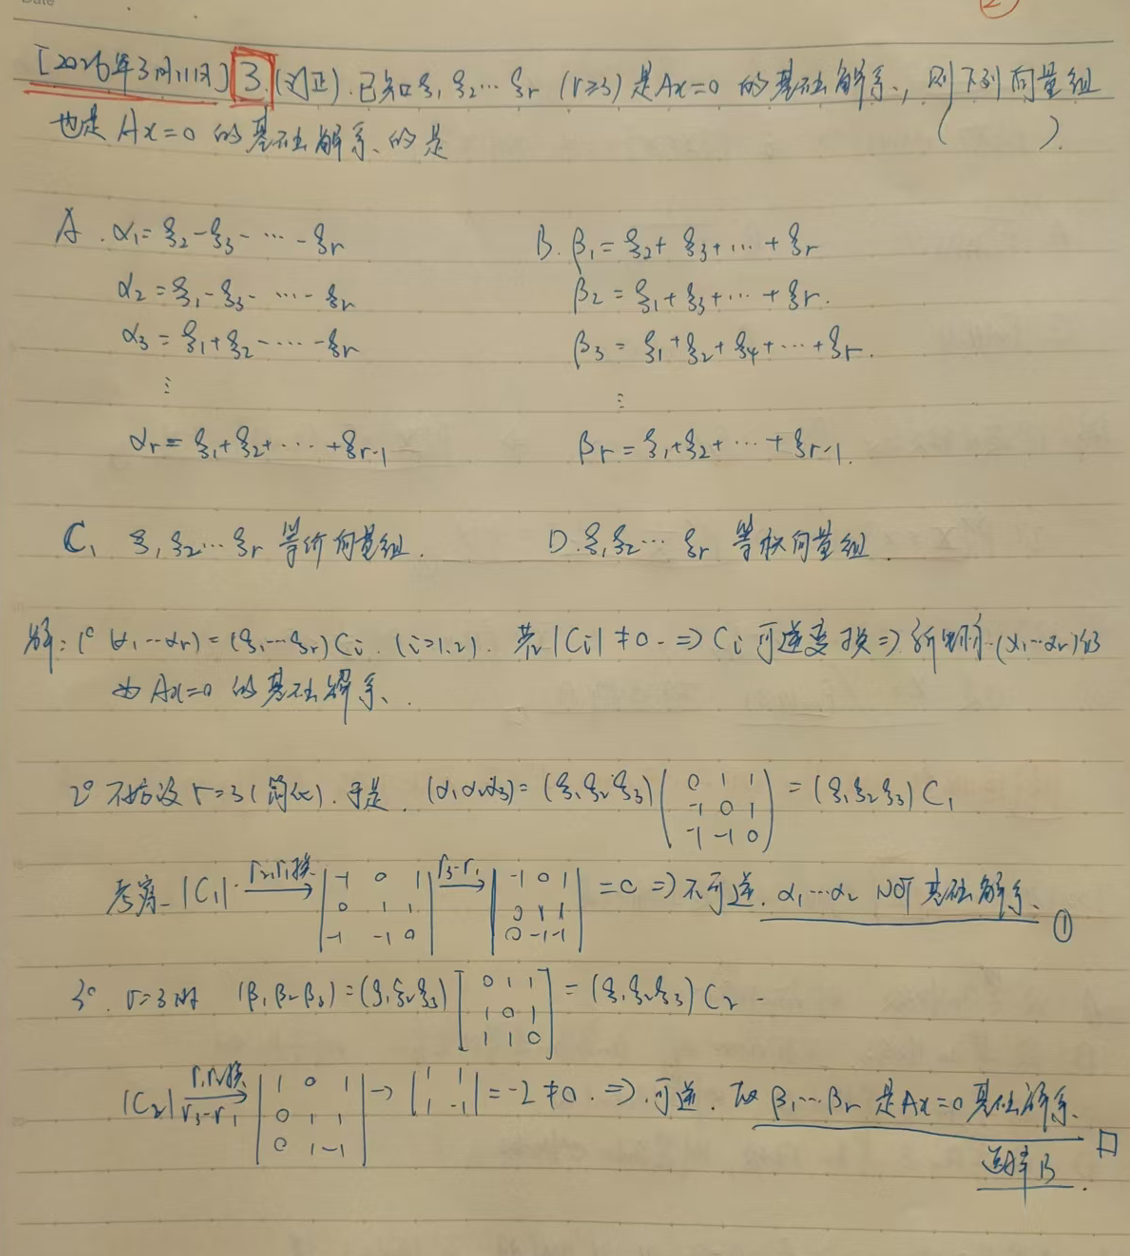 Date
②
[2026年3月11日] 3 (订正). 已知ξ₁ ξ₂…ξr (r≥3) 是Ax=0 的基础解系, 则下列向量组
也是 Ax=0 的基础解系的是 ( ).
A. α₁=ξ₂-ξ₃-…-ξr
B. β₁=ξ₂+ξ₃+…+ξr
α₂=ξ₁-ξ₃-…-ξr
β₂=ξ₁+ξ₃+…+ξr.
α₃=ξ₁+ξ₂-…-ξr
β₃=ξ₁+ξ₂+ξ₄+…+ξr.
⋮
⋮
αr=ξ₁+ξ₂+…+ξr-1
βr=ξ₁+ξ₂+…+ξr-1.
C. ξ₁ξ₂…ξr 等价向量组.
D. ξ₁ξ₂…ξr 等秩向量组.
解: 1° (α₁…αr)=(ξ₁…ξr)Ci. (i=1,2). 若|Ci|≠0. ⇒ Ci 可逆变换⇒ (α₁…αr)仍
为 Ax=0 的基础解系.
2° 不妨设 r=3(简化). 于是. (α₁α₂α₃)=(ξ₁ξ₂ξ₃)(0 1 1
-1 0 1
-1 -1 0) = (ξ₁ξ₂ξ₃)C₁
考察 |C₁| r₂,r₁换→ |-1 0 1
0 1 1
-1 -1 0| r₃-r₁→ |-1 0 1
0 1 1
0 -1 -1| =0 ⇒不可逆. α₁…α₂ NOT 基础解系. ①
3°. r=3时 (β₁β₂β₃)=(ξ₁ξ₂ξ₃)[0 1 1
1 0 1
1 1 0] = (ξ₁ξ₂ξ₃)C₂
|C₂| r₁r₂换 r₃-r₁→ |1 0 1
0 1 1
0 1 -1| → |1 1
1 -1| =-2≠0. ⇒ 可逆. 故 β₁…βr 是Ax=0 基础解系. □
选择B.